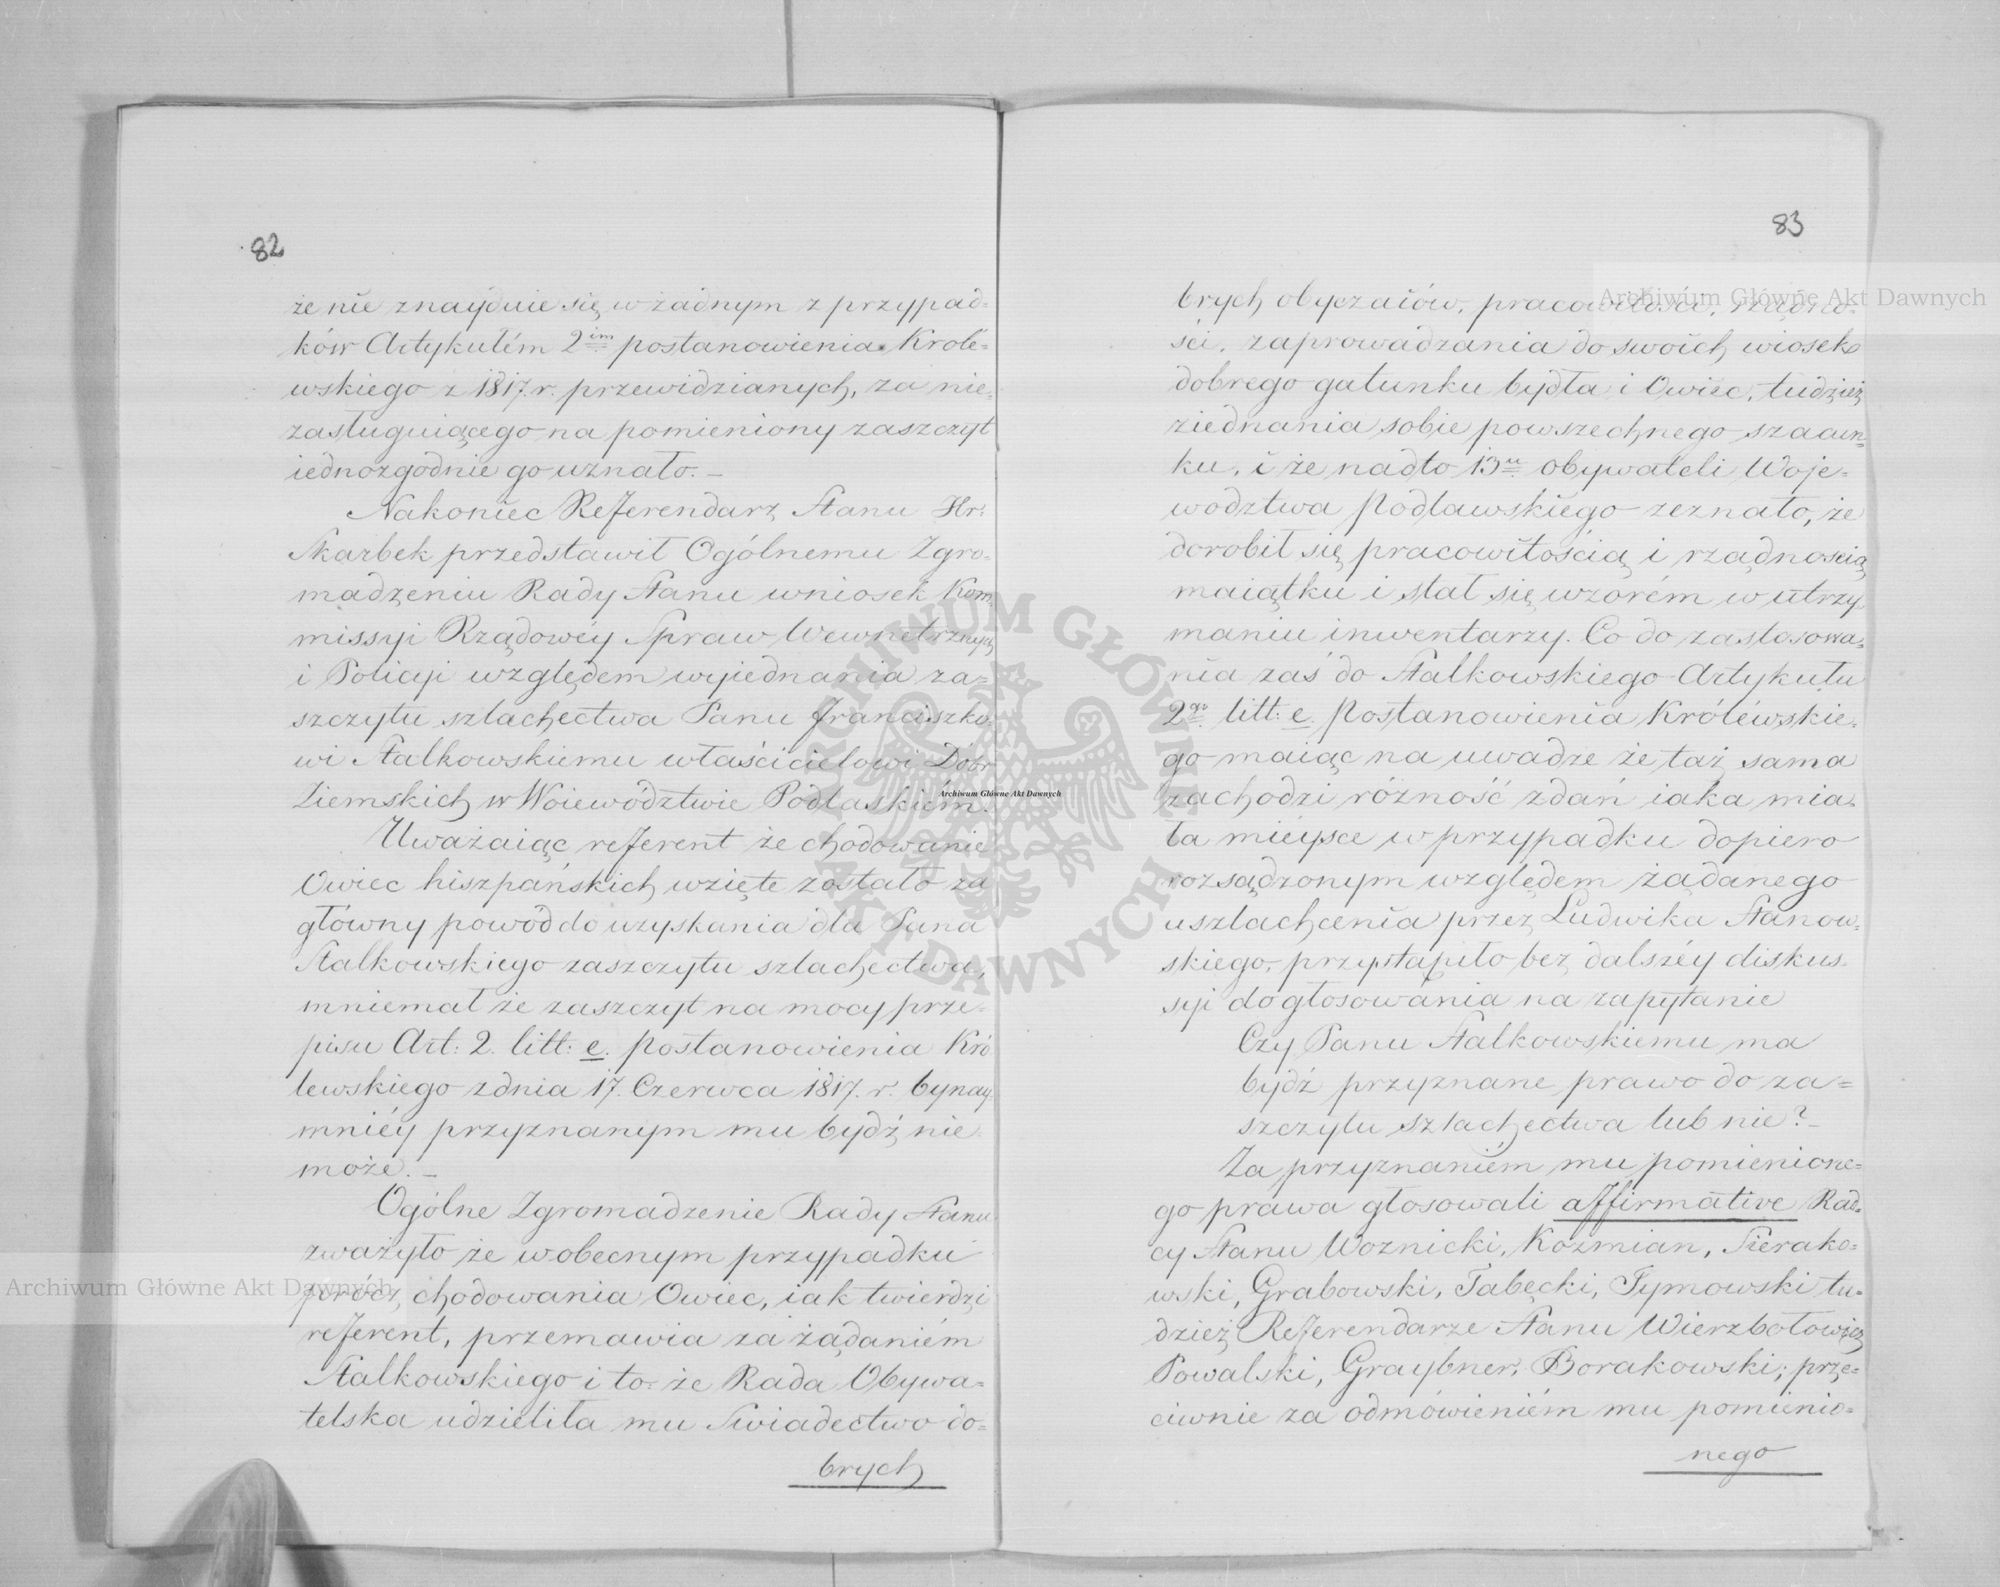 82
że nie znayduie się w żadnym z przypad=
ków Artykułém 2im postanowienia Królé=
wskiego z 1817. r. przewidzianych, za nie=
zasługuiącego na pomieniony zaszczyt
iednozgodnie go uznało. –
Nakoniec Referendarz Stanu Hr:
Skarbek przedstawił Ogólnemu Zgro=
madzeniu Rady Stanu wniosek Kom=
missyi Rządowéy Spraw Wewnętrznych
i Policyi względem wyiednania za=
szczytu szlachectwa Panu Franciszko
wi Stalkowskiemu właścicielowi Dóbr
Ziemskich w Woiewództwie Podlaskiém.
Uważaiąc referent że chodowanie
Owiec hiszpańskich wzięte zostało za
główny powód do uzyskania dla Pana
Stalkowskiego zaszczytu szlachectwa,
mniemał że zaszczyt na mocy prze=
pisu Art: 2. litt: e. postanowienia Kró
lewskiego z dnia 17. Czerwca 1817. r. bynay
mniéy przyznanym mu bydź nie
może. –
Ogólne Zgromadzenie Rady Stanu
zważyło że w obecnym przypadku
prócz chodowania Owiec, iak twierdzi
referent, przemawia za żądaniém
Stalkowskiego i to: że Rada Obywa=
telska udzieliła mu Swiadectwo do=
brych
83
brych obyczaiów, pracowitości, rządno=
ści, zaprowadzania do swoich wiosek
dobrego gatunku bydła i Owiec, tudzież
ziednania sobie powszechnego szacun=
ku, i że nadto 13u obywateli Woje=
wodztwa Podlawskiego zeznało, że
dorobił się pracowitością i rządnoscią
maiątku i stał się wzorém w utrzy
maniu inwentarzy. Co do zastosowa=
nia zaś do Stalkowskiego Artykułu
2go litt: e. Postanowienia Królewskie=
go maiąc na uwadze że taż sama
zachodzi różność zdań iaka mia=
ła mieysce w przypadku dopiero
rozsądzonym względem żądanego
uszlachcenia przez Ludwika Stanow=
skiego, przystąpiło bez dalszéy diskus=
syi do głosowania na zapytanie
Czy Panu Stalkowskiemu ma
bydź przyznane prawo do za=
szczytu szlachectwa lub nie? –
Za przyznaniém mu pomienione=
go prawa głosowali affirmative Rad=
cy Stanu Woznicki, Kozmian, Sierako=
wski, Grabowski, Tabęcki, Tymowski tu=
dzież Referendarze Stanu Wierzbołowicz
Powalski, Graybner, Borakowski; prze=
ciwnie za odmówieniém mu pomienio=
nego
Archiwum Główne Akt Dawnych
Archiwum Główne Akt Dawnych
Archiwum Główne Akt Dawnych
ARCHIWUM GŁÓWNE AKT DAWNYCH